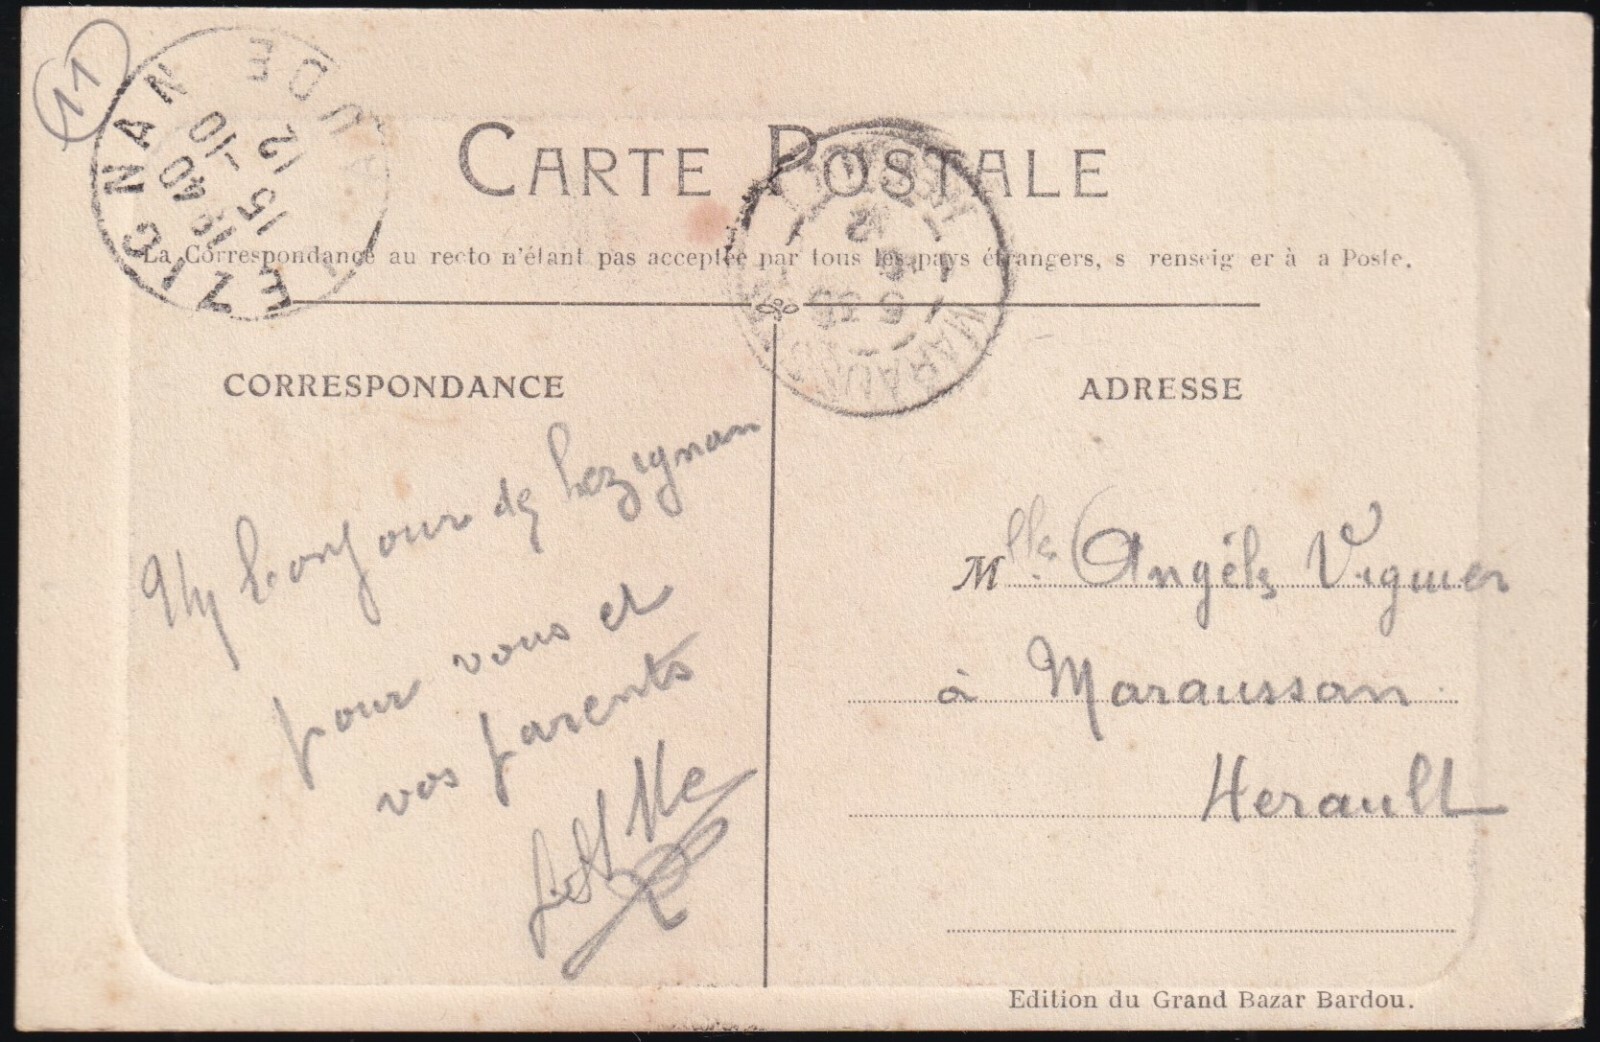 11
LEZIGNAN
AUDE
19 40
15 -10
12
CARTE POSTALE
La Correspondance au recto n'étant pas acceptée par tous les pays étrangers, s renseig er à a Poste.
MARAUSSAN
CORRESPONDANCE
My bonjour de Lezignan
pour vous et
vos parents
ADRESSE
Mlle Angèle Viguier
à Maraussan
Herault
Edition du Grand Bazar Bardou.